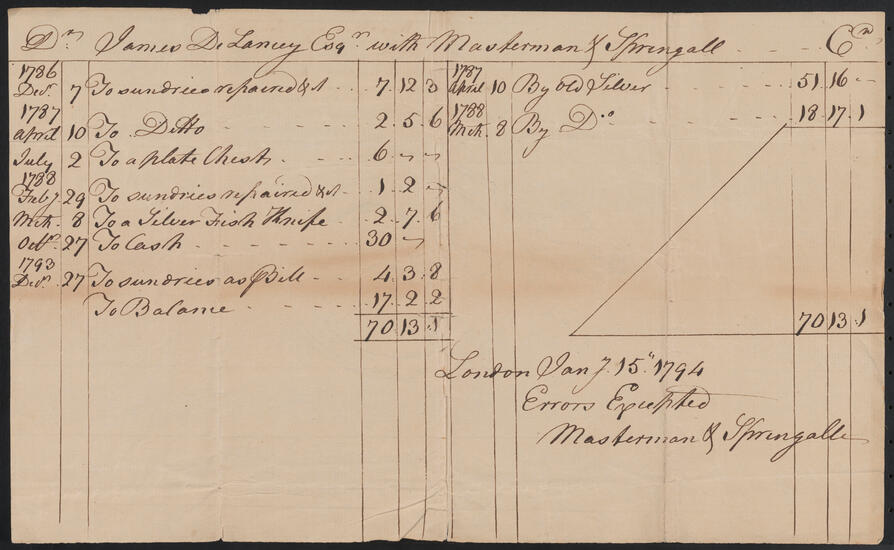 Dr. James De Lancey Esqr. with Masterman & Springall Cr.
1786
Decr. 7 To sundries repaired &c 7. 12. 3
1787
April 10 To Ditto 2. 5. 6
July 2 To a plate Chest 6 " "
1788
Feby. 29 To sundries repaired &c 1. 2 "
Mch. 8 To a Silver Fish Knife 2. 7. 6
Octr. 27 To Cash 30 "
1793
Decr. 27 To sundries as Bill 4. 3. 8
To Balance 17. 2. 2
70. 13. 1
1787
April 10 By old Silver 51. 16. -
1788
Mch. 8 By Do. 18. 17. 1
70. 13. 1
London Jany. 15" 1794
Errors Excepted
Masterman & Springall